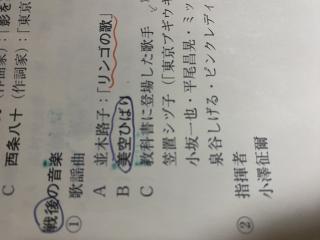 (作曲家):「影を
C 西条八十(作詞家):「東京
戦後の音楽
① 歌謡曲
A 並木路子:「リンゴの歌」
B 美空ひばり
C 教科書に登場した歌手
笠置シヅ子(「東京ブギウギ
小坂一也・平尾昌晃・ミッ
泉谷しげる・ピンクレディ
② 指揮者
小澤征爾